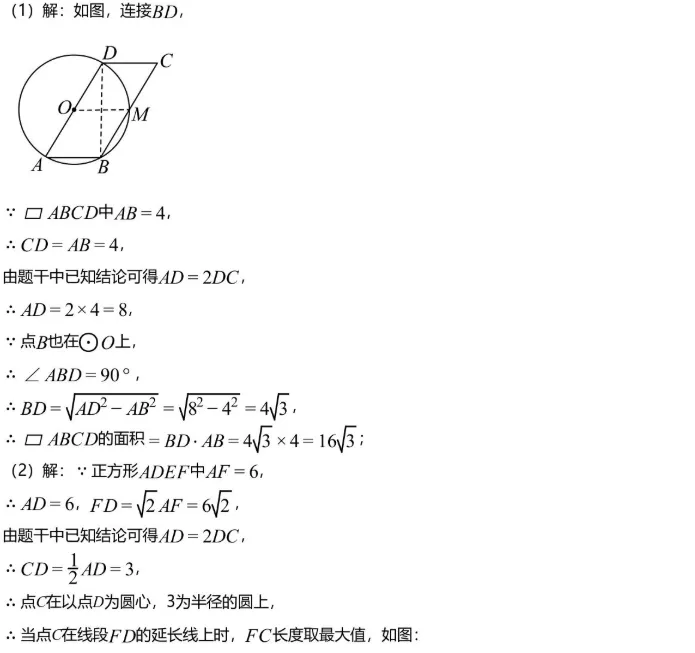 （1）解：如图，连接BD，
D
C
O
M
A
B
∵ ▱ ABCD中AB = 4，
∴ CD = AB = 4，
由题干中已知结论可得AD = 2DC，
∴ AD = 2 × 4 = 8，
∵ 点B也在⊙O上，
∴ ∠ ABD = 90°，
∴ BD = √(AD² − AB²) = √(8² − 4²) = 4√3，
∴ ▱ ABCD的面积 = BD · AB = 4√3 × 4 = 16√3；
（2）解：∵ 正方形ADEF中AF = 6，
∴ AD = 6，FD = √2 AF = 6√2，
由题干中已知结论可得AD = 2DC，
∴ CD = 1/2 AD = 3，
∴ 点C在以点D为圆心，3为半径的圆上，
∴ 当点C在线段FD的延长线上时，FC长度取最大值，如图：